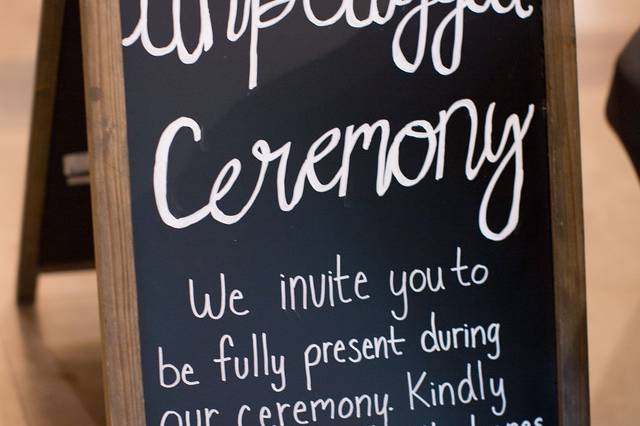 Unplugged
Ceremony
We invite you to
be fully present during
our ceremony. Kindly